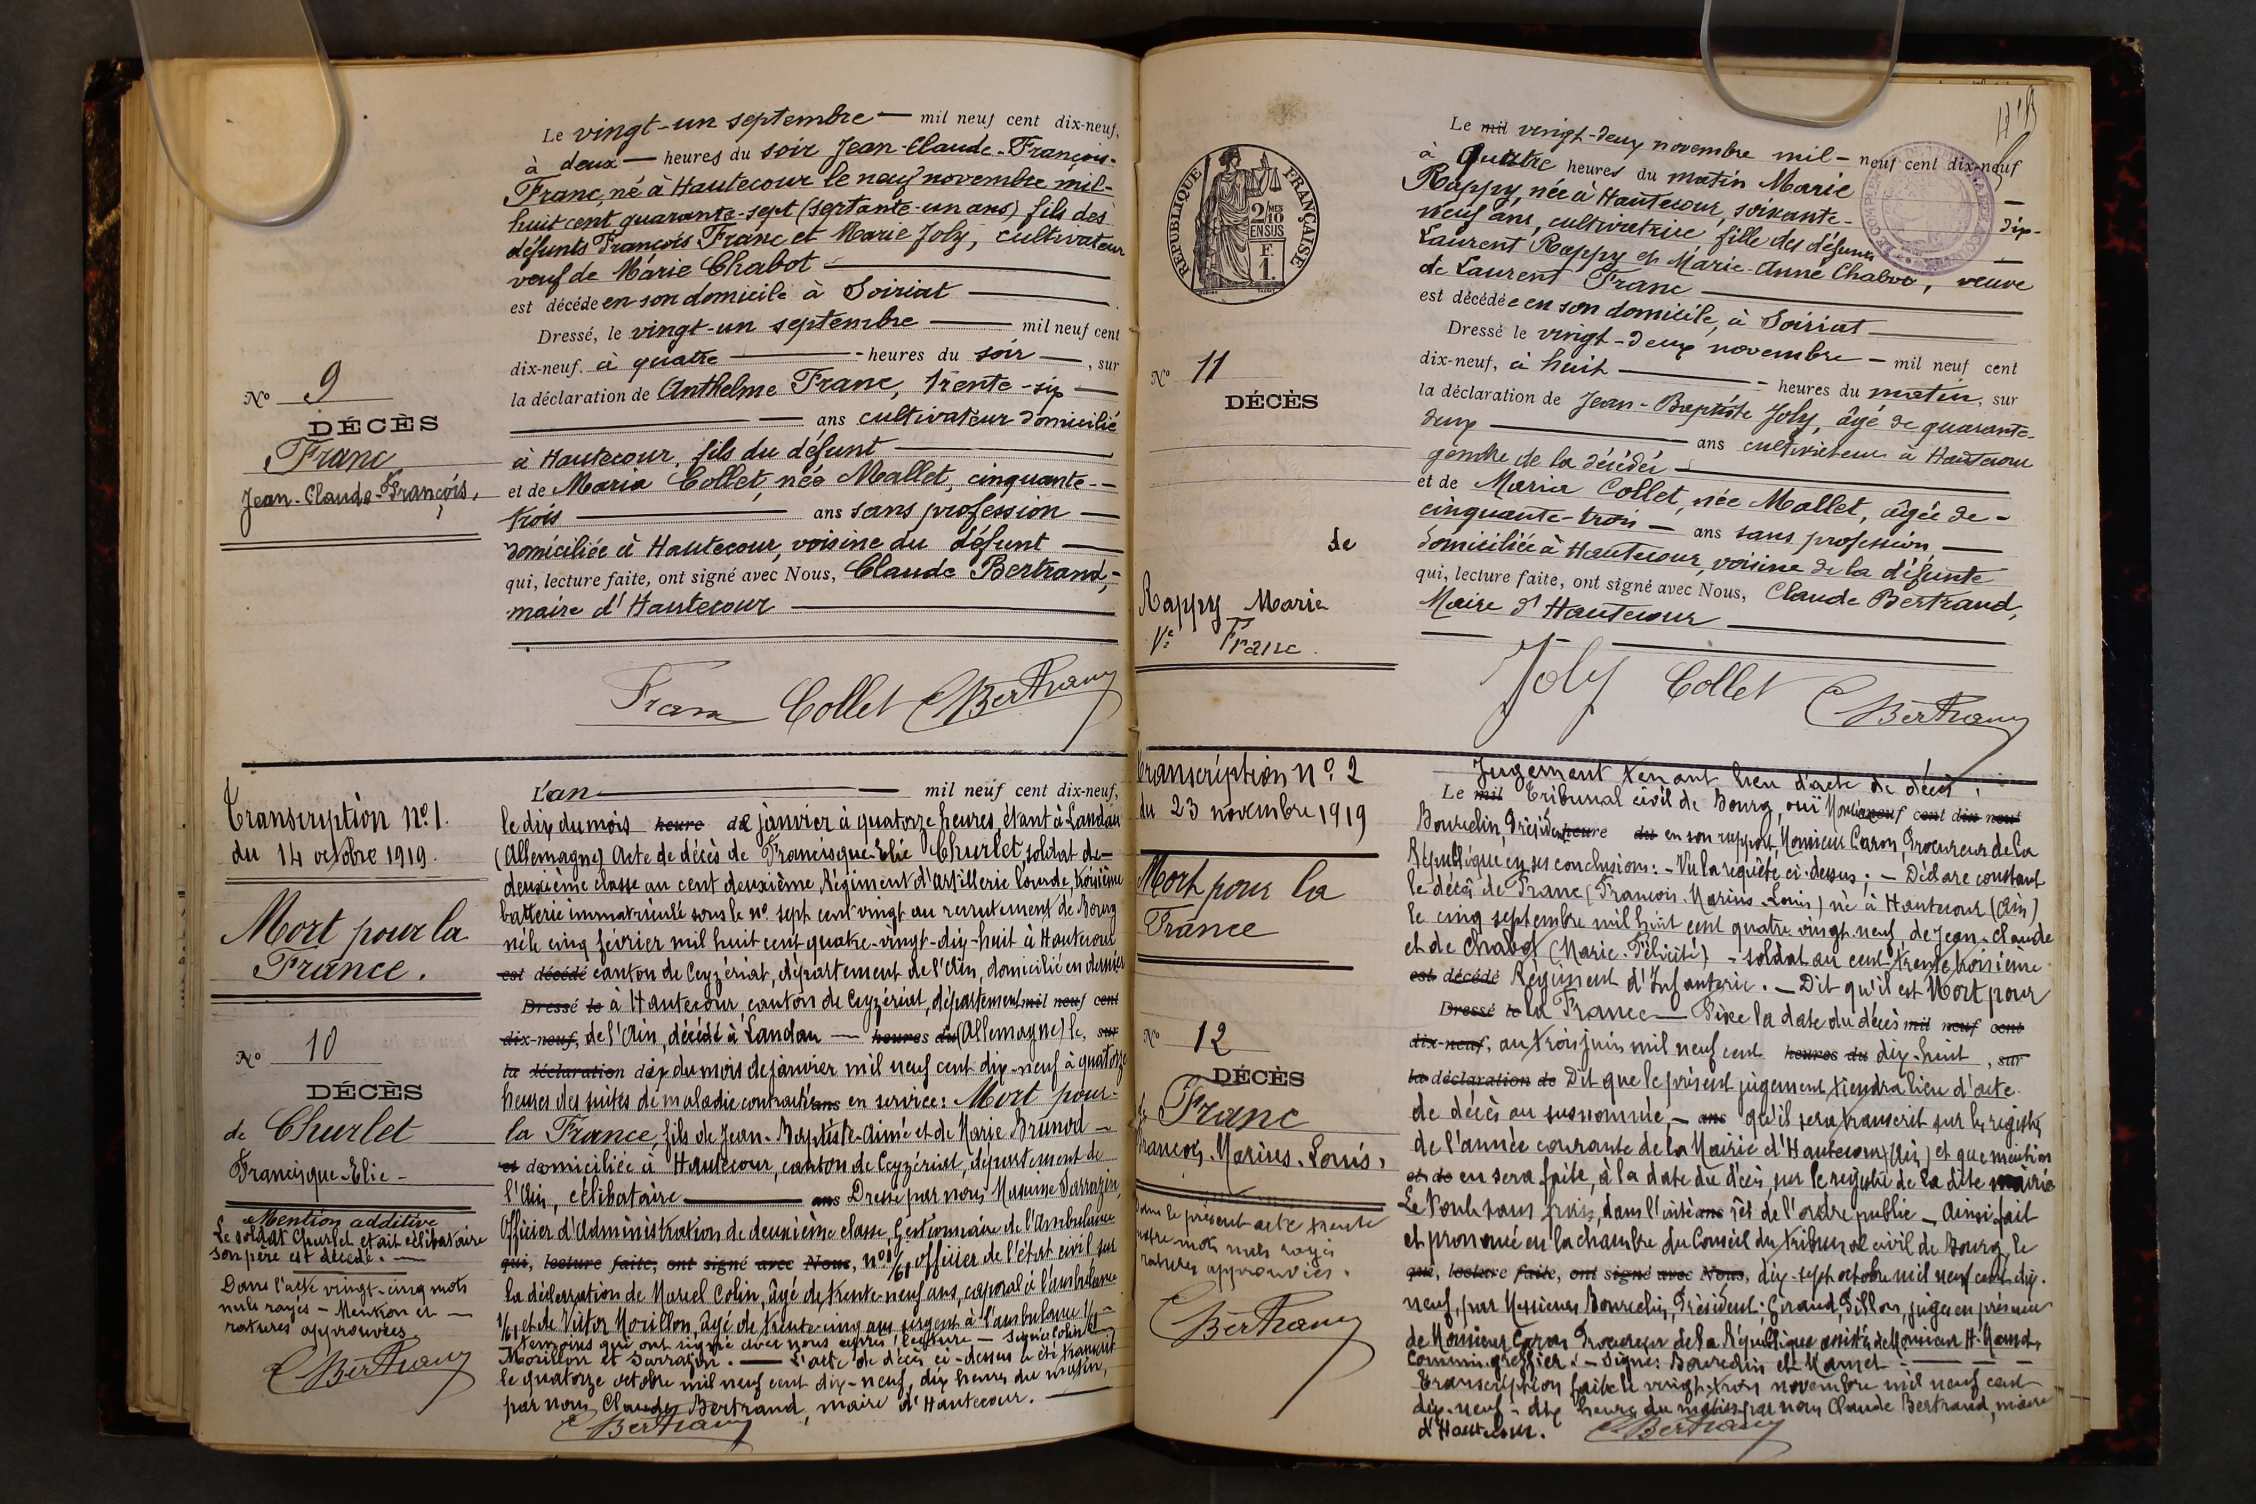 Le vingt-un septembre — mil neuf cent dix-neuf,
à deux — heures du soir Jean-Claude-François-
Franc, né à Hautecour le neuf novembre mil-
huit cent quarante-sept (septante-un ans) fils des
défunts François Franc et Marie Joly, cultivateur
veuf de Marie Chabot —
est décédé en son domicile à Soiriat —
Dressé, le vingt-un septembre — mil neuf cent
dix-neuf. à quatre — heures du soir —, sur
la déclaration de Anthelme Franc, trente-six —
— ans cultivateur domicilié
à Hautecour, fils du défunt —
et de Maria Collet, née Mallet, cinquante-
trois — ans sans profession —
domiciliée à Hautecour, voisine du défunt —
qui, lecture faite, ont signé avec Nous, Claude Bertrand,
maire d'Hautecour —
Franc Collet C Bertrand
N° 9
DÉCÈS
Franc
Jean-Claude-François,
Transcription n° 1.
du 14 octobre 1919.
Mort pour la
France.
N° 10
DÉCÈS
de Churlet
Francisque-Elie-
Mention additive
Le soldat Churlet était célibataire
son père est décédé. —
Dans l'acte vingt-cinq mots
nuls rayés — Mention et —
ratures approuvées
C Bertrand
L'an — mil neuf cent dix-neuf,
le dix du mois heure de janvier à quatorze heures, étant à Landau
(Allemagne) Acte de décès de Francisque-Elie Churlet soldat de-
deuxième classe au cent deuxième Régiment d'artillerie lourde, troisième
batterie immatriculé sous le n° sept cent vingt au recrutement de Bourg
né le cinq février mil huit cent quatre-vingt-dix-huit à Hautecour
est décédé canton de Ceyzériat, département de l'Ain, domicilié en dernier
Dressé le à Hautecour, canton de Ceyzériat, département mil neuf cent
dix-neuf, de l'Ain, décédé à Landau — heures du (Allemagne) le, sur
la déclaration dix du mois de janvier mil neuf cent dix-neuf à quatorze
heures des suites de maladie contractée ans en service: Mort pour-
la France, fils de Jean-Baptiste-Aimé et de Marie Brunod —
et domiciliée à Hautecour, canton de Ceyzériat, département de
l'Ain, célibataire — ans Dressé par nous Maxume Sarrazin,
Officier d'Administration de deuxième classe, Gestionnaire de l'Ambulance
qui, lecture faite, ont signé avec Nous, n° 1/61 officier de l'état civil sur
la déclaration de Marcel Colin, âgé de trente-neuf ans, caporal à l'ambulance
1/61 et de Victor Morillon, âgé de trente-cinq ans, sergent à l'ambulance 1/61
témoins qui ont signé avec nous après lecture — Signé: Colin
Morillon et Sarrazin. — L'acte de décès ci-dessus a été transcrit
le quatorze octobre mil neuf cent dix-neuf, dix heures du matin,
par nous Claude Bertrand, maire d'Hautecour. —
C Bertrand
Le mil vingt-deux novembre mil — neuf cent dix-neuf
à quatre heures du matin Marie —
Rappy, née à Hautecour, soixante- dix-
neuf ans, cultivatrice fille des défunts —
Laurent Rappy et Marie-Anne Chabot, veuve
de Laurent Franc —
est décédée en son domicile, à Soiriat —
Dressé le vingt-deux novembre — mil neuf cent
dix-neuf, à huit — heures du matin, sur
la déclaration de Jean-Baptiste Joly, âgé de quarante-
deux — ans cultivateur à Hautecour
gendre de la décédée —
et de Maria Collet, née Mallet, âgée de —
cinquante-trois — ans sans profession, —
domiciliée à Hautecour, voisine de la défunte
qui, lecture faite, ont signé avec Nous, Claude Bertrand,
Maire d'Hautecour —
Joly Collet C Bertrand
RÉPUBLIQUE FRANÇAISE
2 MES
10
EN SUS
F.
1.
N° 11
DÉCÈS
de
Rappy Marie
Ve Franc.
Transcription n° 2
du 23 novembre 1919
Mort pour la
France
N° 12
DÉCÈS
de Franc
François-Marius-Louis,
Dans le présent acte trente
quatre mots nuls rayés
ratures approuvées.
C Bertrand
Jugement tenant lieu d'acte de décès.
Le mil Tribunal civil de Bourg, ouï Monsieur neuf cent dix neuf
Bourdin, Président heure du en son rapport, Monsieur Caron, Procureur de la
République en ses conclusions: — Vu la requête ci-dessus; — Déclare constant
le décès de Franc (François-Marius-Louis) né à Hautecour (Ain)
le cinq septembre mil huit cent quatre vingt-neuf, de Jean-Claude
et de Chabot (Marie-Félicité) — soldat au cent trente troisième
est décédé Régiment d'Infanterie. — Dit qu'il est Mort pour
Dressé le la France — Fixe la date du décès mil neuf cent
dix-neuf, au trois juin mil neuf cent heures du dix-huit, sur
la déclaration de Dit que le présent jugement tiendra lieu d'acte
de décès au susnommé, — ans qu'il sera transcrit sur les registres
de l'année courante de la Mairie d'Hautecour (Ain) et que mention
et de en sera faite, à la date du décès, sur le registre de la dite mairie
Le tout sans frais, dans l'intè ans rêt de l'ordre public — Ainsi fait
et prononcé en la chambre du Conseil du tribunal civil de Bourg, le
qui, lecture faite, ont signé avec Nous, dix-sept octobre mil neuf cent dix-
neuf, par Messieurs Bourdin, Président; Giraud, Pillon, juges en présence
de Monsieur Caron Procureur de la République assistés de Monsieur H. Hamet,
Commis-greffier. — Signé: Bourdin et Hamet —
Transcription faite le vingt-trois novembre mil neuf cent
dix-neuf — dix heures du matin par nous Claude Bertrand, maire
d'Hautecour. C Bertrand